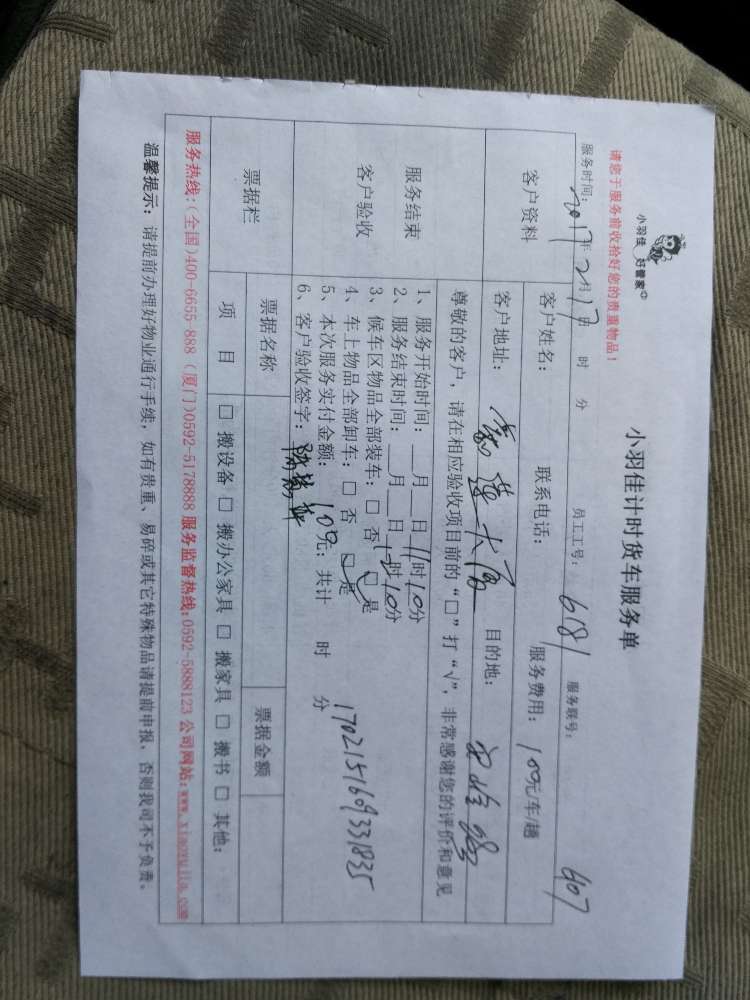 小羽佳 好管家
小羽佳计时货车服务单
请您于服务前收拾好您的贵重物品！
服务时间：2017年2月17日 时 分 员工工号：6181 服务联号：407
客户资料
客户姓名： 联系电话： 服务费用：100元车/趟
客户地址： 目的地：
尊敬的客户，请在相应验收项目前的“□”打“√”，非常感谢您的评价和意见
服务结束
客户验收
1、服务开始时间：__月__日11时10分
2、服务结束时间：__月__日12时10分
3、候车区物品全部装车：□ 否 □ 是
4、车上物品全部卸车：□ 否 □ 是
5、本次服务实付金额：100元；共计 时 分
6、客户验收签字：
1702151609331835
票据栏
票据名称 票据金额
项 目 □ 搬设备 □ 搬办公家具 □ 搬家具 □ 搬书 □ 其他：
服务热线:(全国)400-6655 888 (厦门)0592-5178888 服务监督热线:0592-5888123 公司网站:www.xiaoyujia.com
温馨提示：请提前办理好物业通行手续，如有贵重、易碎或其它特殊物品请提前申报，否则我司不予负责。